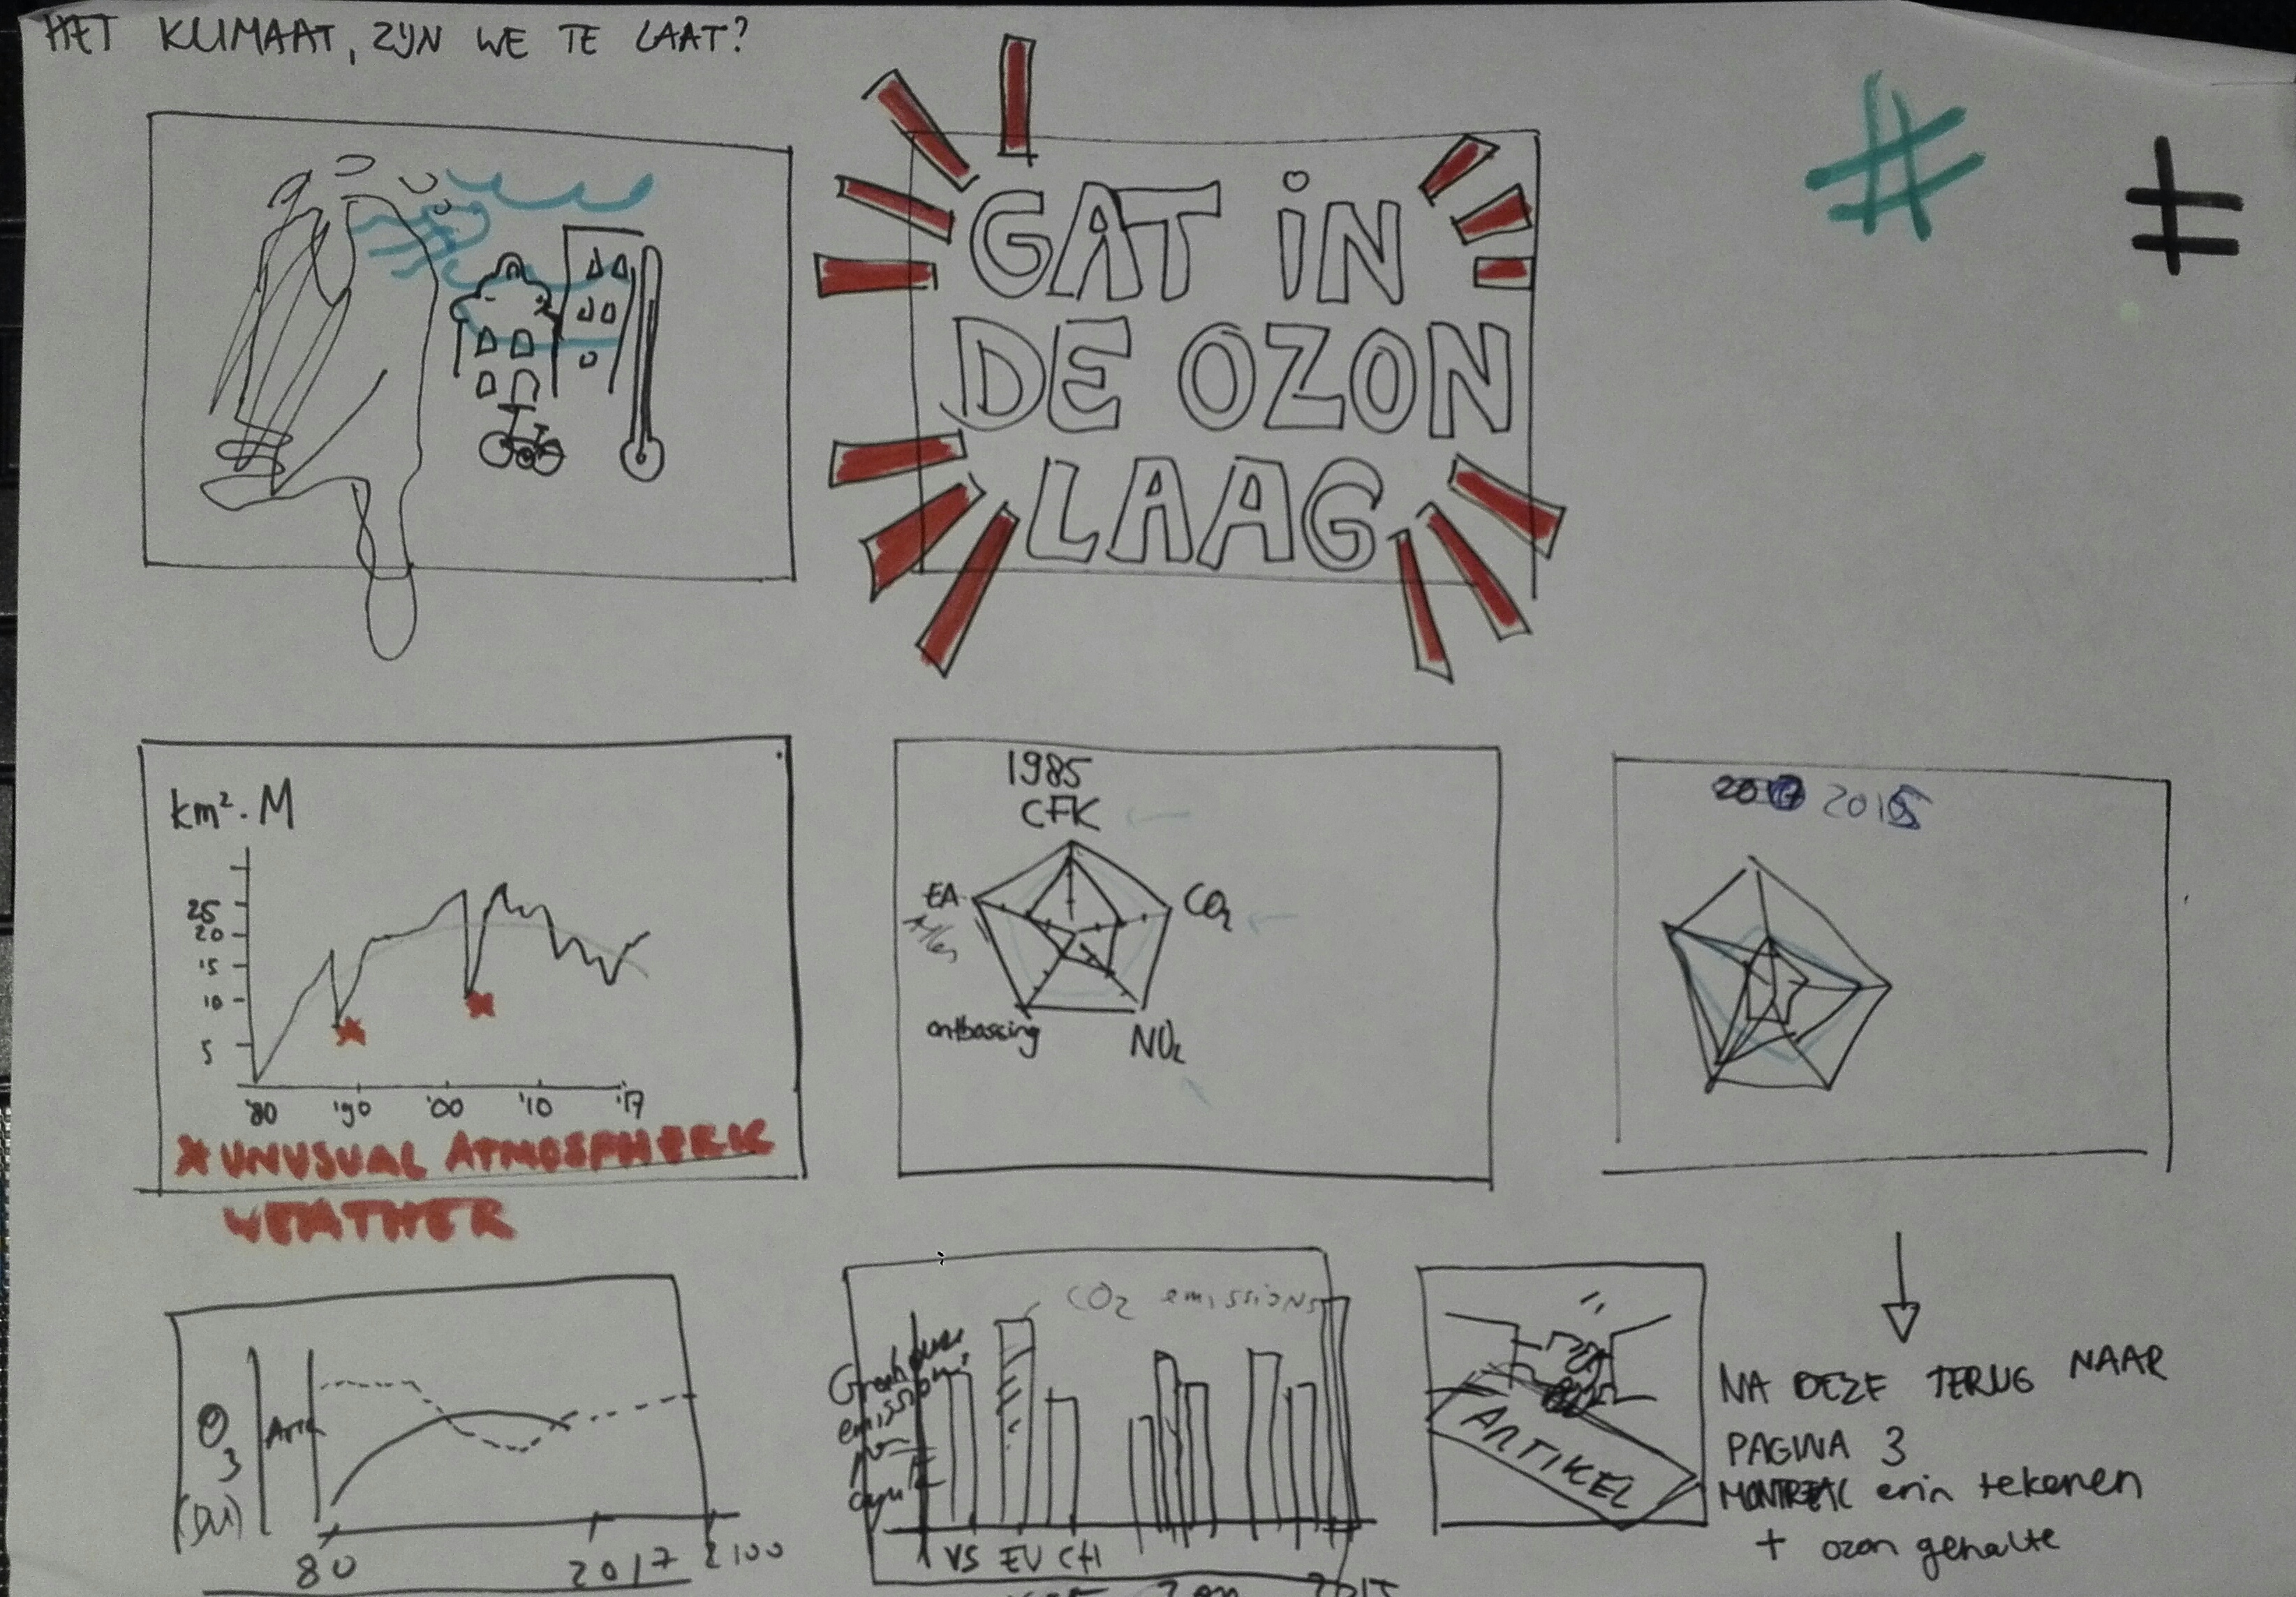 HET KLIMAAT, ZIJN WE TE LAAT?
GAT IN
DE OZON
LAAG
#
km². M
25
20
15
10
5
'80 '90 '00 '10 '17
* UNUSUAL ATMOSPHERIC
WEATHER
1985
CFK
EA
CO₂
ontbossing
NO₂
2015
O₃
(DU)
80 2017 2100
CO₂ emissions
emissions
VS EU CH
2015
ARTIKEL
NA DEZE TERUG NAAR
PAGINA 3
MONTREAL erin tekenen
+ ozon gehalte